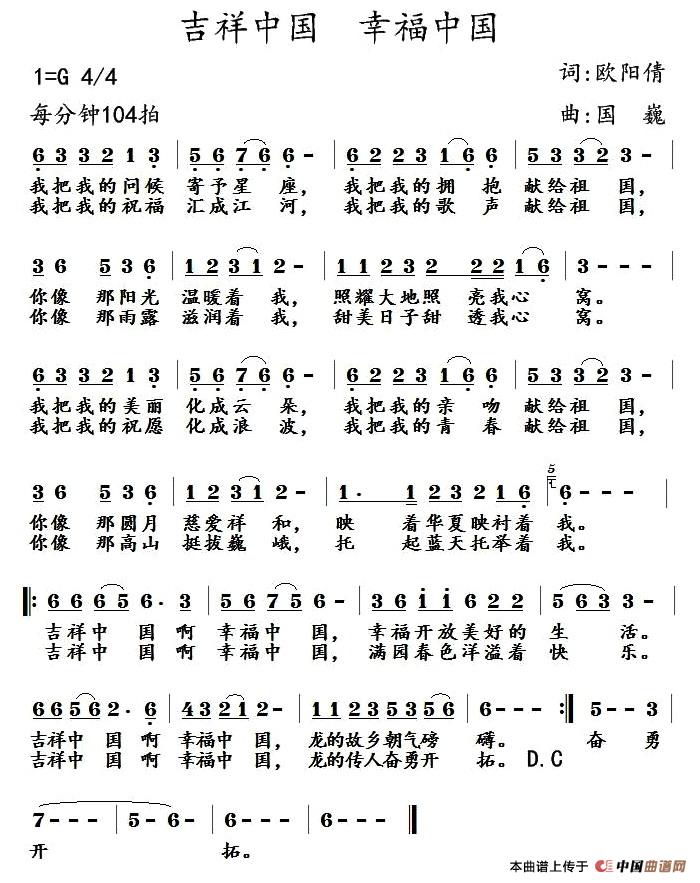 吉祥中国　幸福中国
1=G 4/4
词:欧阳倩
每分钟104拍
曲:国　巍
6 3 3 2 1 3 | 5 6 7 6 6 - | 6 2 2 3 1 6 6 | 5 3 3 2 3 - |
我把我的问候 寄予星 座， 我把我的拥 抱 献给祖 国，
我把我的祝福 汇成江 河， 我把我的歌 声 献给祖 国，
3 6 5 3 6 | 1 2 3 1 2 - | 1 1 2 3 2 2 2 1 6 | 3 - - - |
你像 那阳光 温暖着 我， 照耀大地照 亮我心 窝。
你像 那雨露 滋润着 我， 甜美日子甜 透我心 窝。
6 3 3 2 1 3 | 5 6 7 6 6 - | 6 2 2 3 1 6 6 | 5 3 3 2 3 - |
我把我的美丽 化成云 朵， 我把我的亲 吻 献给祖 国，
我把我的祝愿 化成浪 波， 我把我的青 春 献给祖 国，
3 6 5 3 6 | 1 2 3 1 2 - | 1 · 1 2 3 2 1 6 | 6 - - - |
你像 那圆月 慈爱祥 和， 映 着华夏映衬着 我。
你像 那高山 挺拔巍 峨， 托 起蓝天托举着 我。
‖: 6 6 6 5 6 · 3 | 5 6 7 5 6 - | 3 6 1 1 6 2 2 | 5 6 3 3 - |
吉祥中 国啊 幸福中 国， 幸福开放美好的 生 活。
吉祥中 国啊 幸福中 国， 满园春色洋溢着 快 乐。
6 6 5 6 2 · 6 | 4 3 2 1 2 - | 5 5 3 5 5 3 5 6 | 6 - - - :‖ 5 - - 3 |
吉祥中 国啊 幸福中 国， 龙的故乡朝气磅 礴。 奋 勇
吉祥中 国啊 幸福中 国， 龙的传人奋勇开 拓。 D.C
7 - - - | 5 - 6 - | 6 - - - | 6 - - - ‖
开 拓。
本曲谱上传于 中国曲谱网